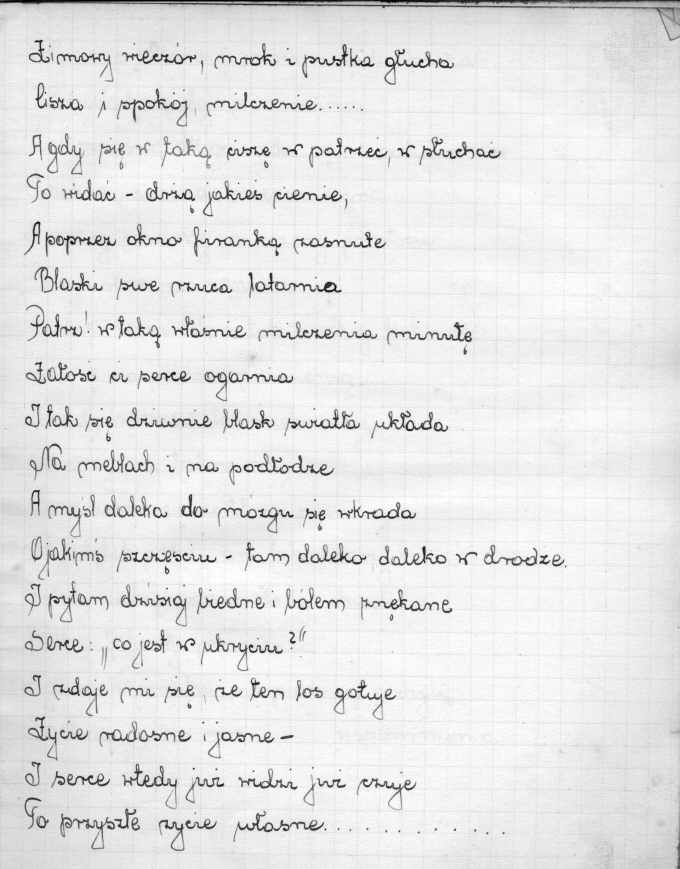 Zimowy wieczór, mrok i pustka głucha
Cisza i spokój, milczenie......
A gdy się w taką ciszę w patrzeć, w słuchać
To widać - drżą jakieś cienie,
A poprzez okno firanką zasnute
Blaski swe rzuca latarnia
Patrz! w taką właśnie milczenia minutę
Żałość ci serce ogarnia
I tak się dziwnie blask światła układa
Na meblach i na podłodze
A myśl daleka do mózgu się wkrada
O jakimś szczęściu - tam daleko, daleko w drodze.
I pytam dzisiaj biedne i bólem znękane
Serce: „co jest w ukryciu?"
I zdaje mi się, że ten los gotuje
Życie radosne i jasne -
I serce wtedy już widzi już czuje
To przyszłe życie własne.............